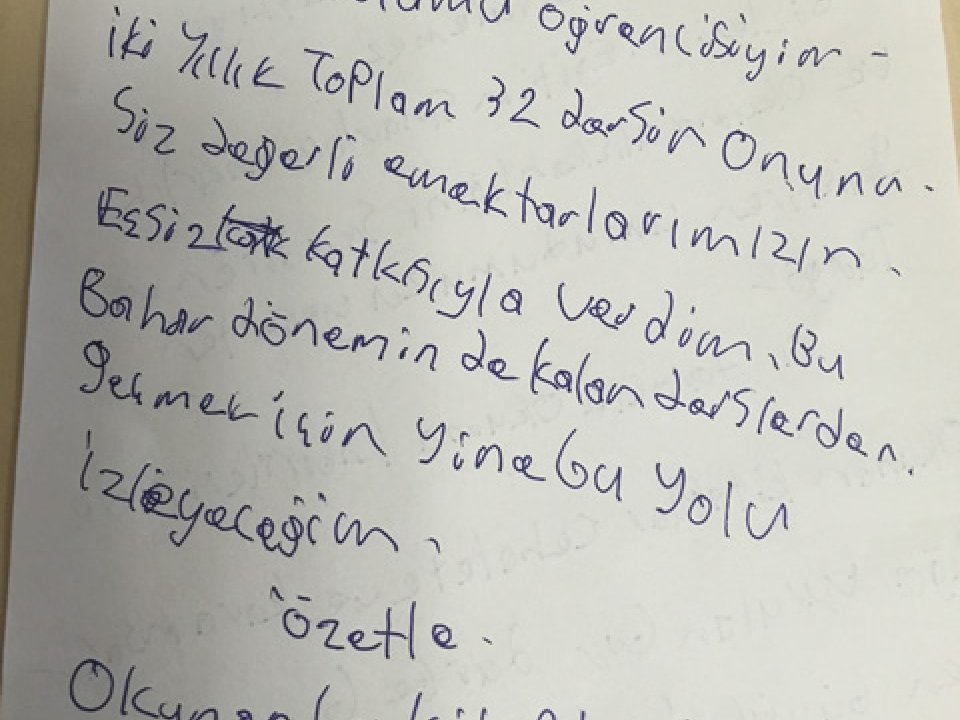 öğrencisiyim -
iki Yıllık Toplam 32 dersin Onunu.
Siz değerli emektarlarımızın.
Eşsiz katkısıyla verdim. Bu
Bahar döneminde kalan derslerden.
geçmek için yine bu yolu
izleyeceğim.
Özetle.